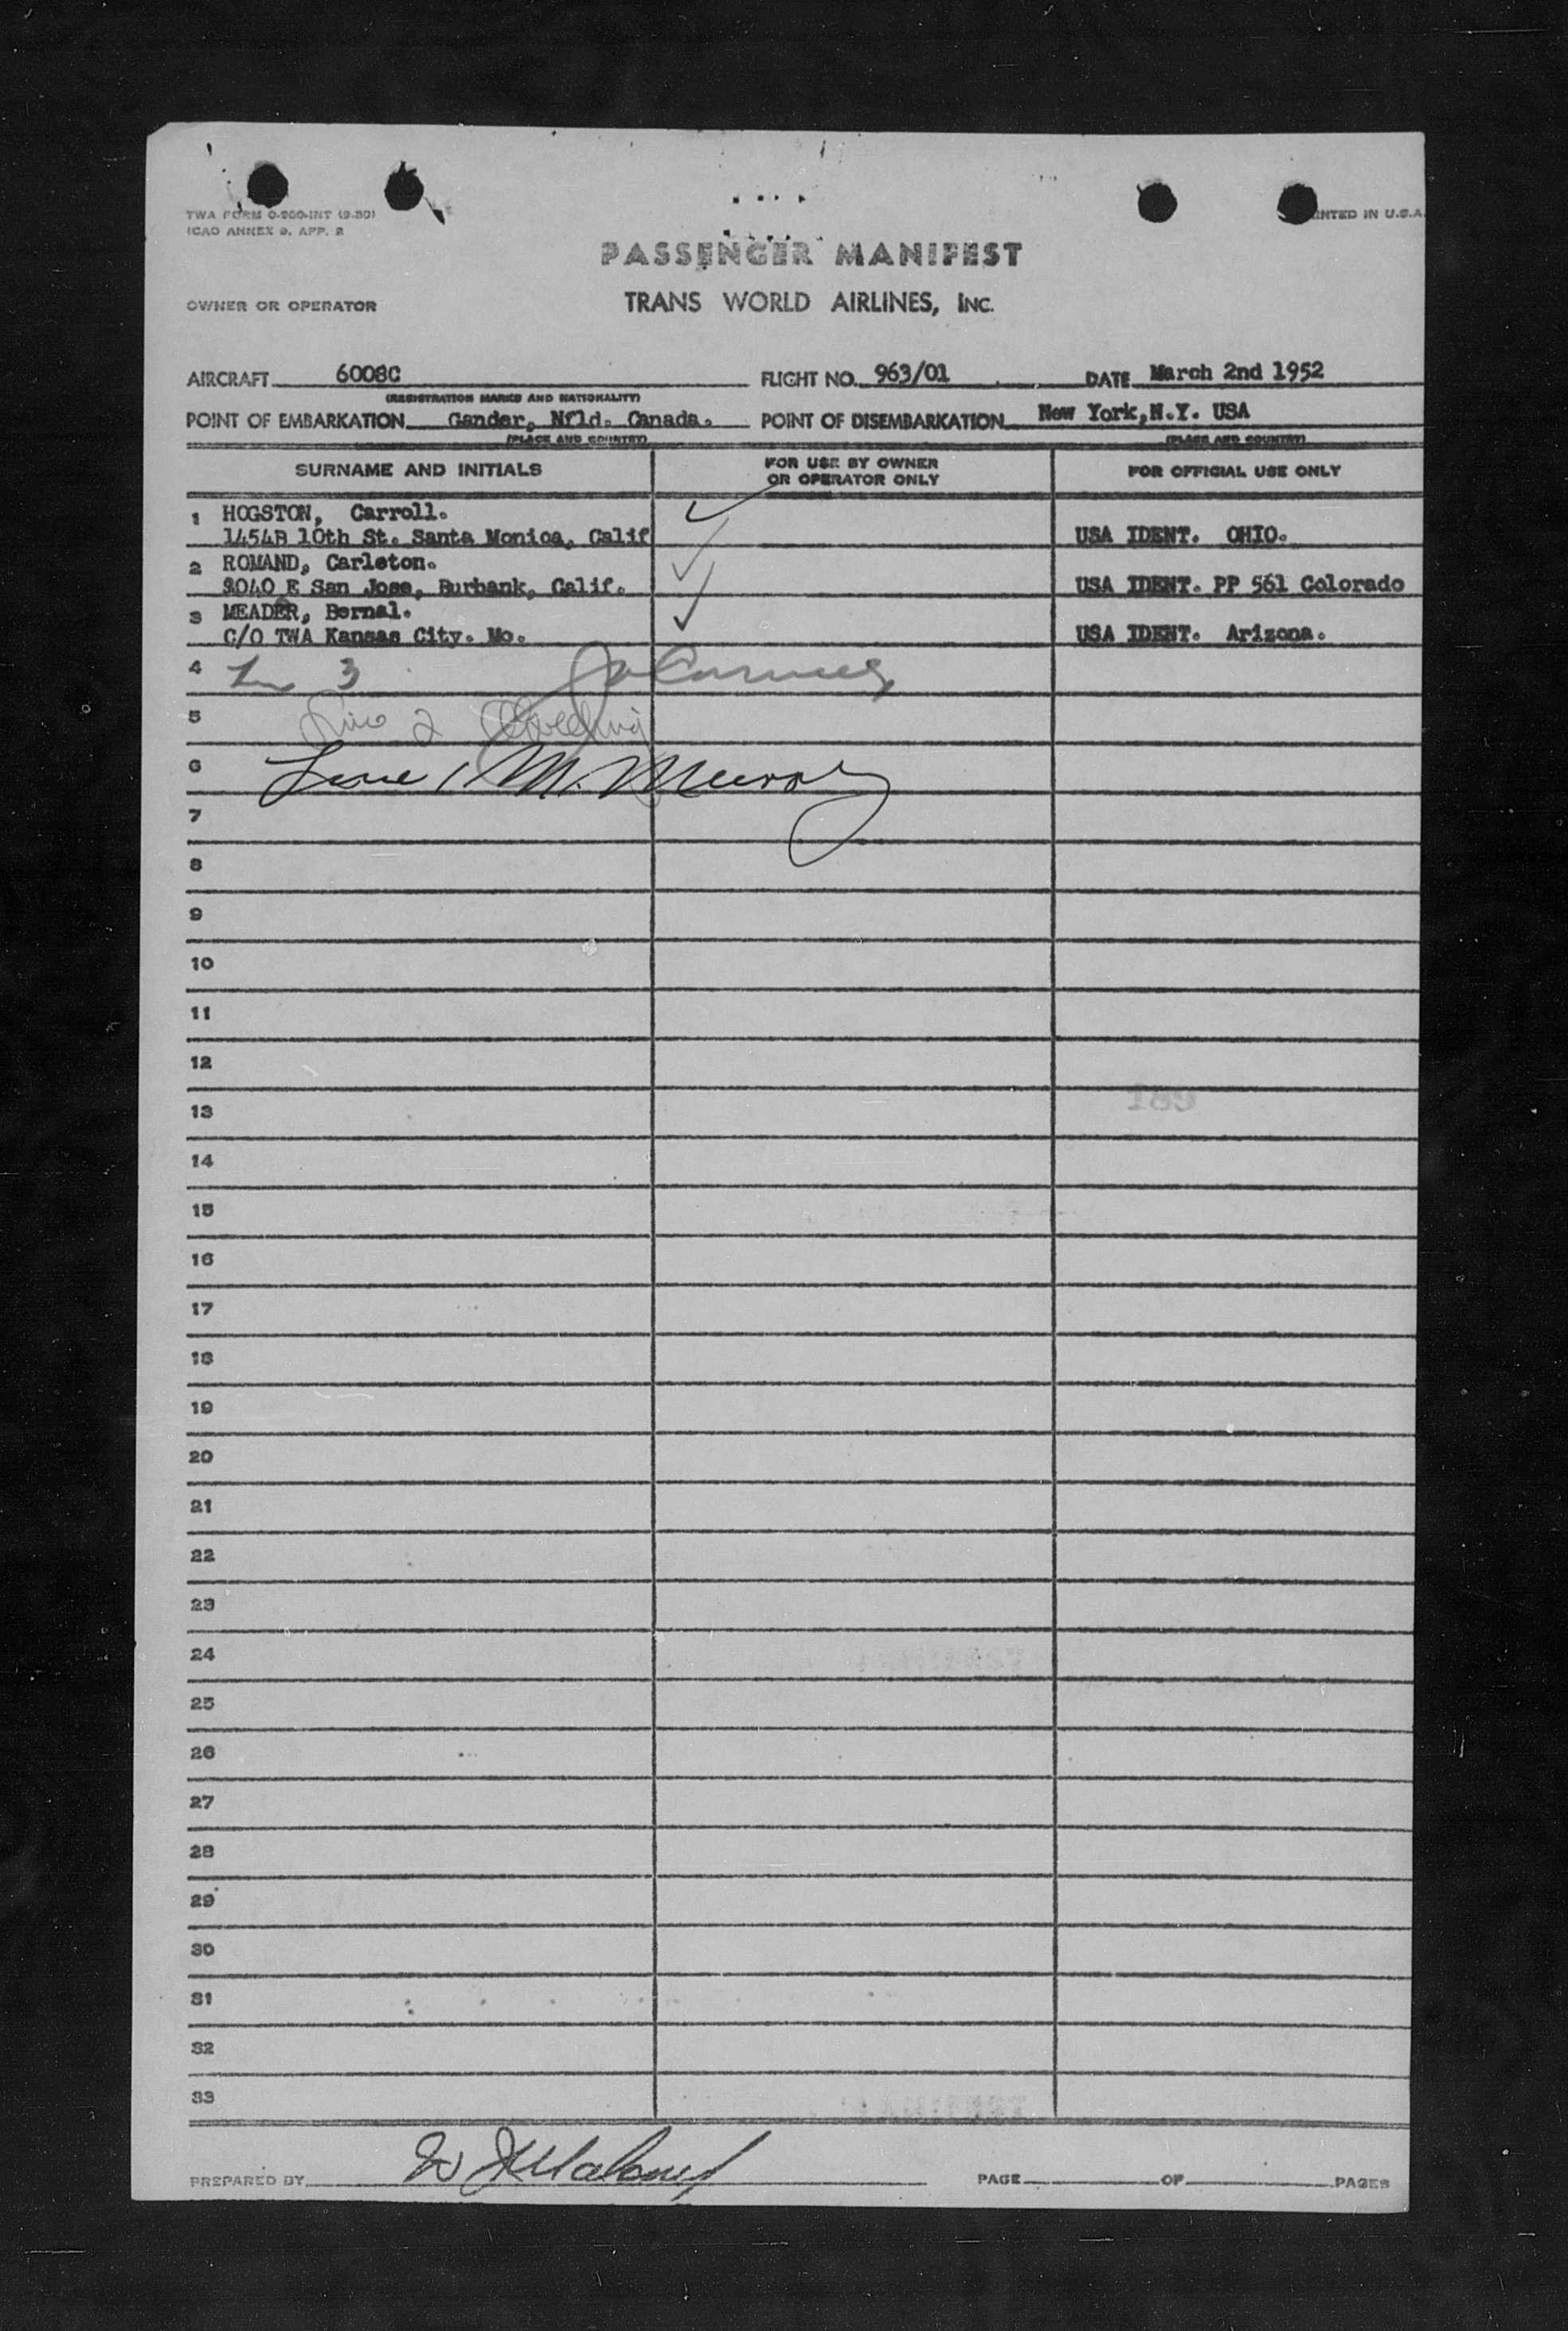 TWA FORM 0-900-INT (9-50)
ICAO ANNEX 9, APP. 2
PRINTED IN U.S.A.
PASSENGER MANIFEST
OWNER OR OPERATOR TRANS WORLD AIRLINES, INC.
AIRCRAFT 6008C FLIGHT NO. 963/01 DATE March 2nd 1952
(REGISTRATION MARKS AND NATIONALITY)
POINT OF EMBARKATION Gander, Nfld. Canada. POINT OF DISEMBARKATION New York,N.Y. USA
(PLACE AND COUNTRY) (PLACE AND COUNTRY)
SURNAME AND INITIALS FOR USE BY OWNER OR OPERATOR ONLY FOR OFFICIAL USE ONLY
1 HOGSTON, Carroll.
1454B 10th St. Santa Monica, Calif USA IDENT. OHIO.
2 ROMAND, Carleton.
3040 E San Jose, Burbank, Calif. USA IDENT. PP 561 Colorado
3 MEADER, Bernal.
C/O TWA Kansas City. Mo. USA IDENT. Arizona.
4 3
5 Line 2
6 Line 1 M. Murphy
7
8
9
10
11
12
13
14
15
16
17
18
19
20
21
22
23
24
25
26
27
28
29
30
31
32
33
PREPARED BY W J Maloney PAGE OF PAGES